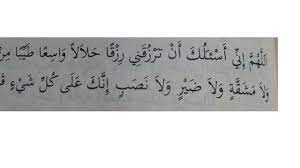 اَللّٰهُمَّ اِنِّيْ أَسْئَلُكَ أَنْ تَرْزُقَنِيْ رِزْقًا حَلَالًا وَاسِعًا طَيِّبًا مِنْ
وَلَا مَشَقَّةٍ وَلَا ضَيْرٍ وَلَا نَصَبٍ إِنَّكَ عَلَى كُلِّ شَيْءٍ